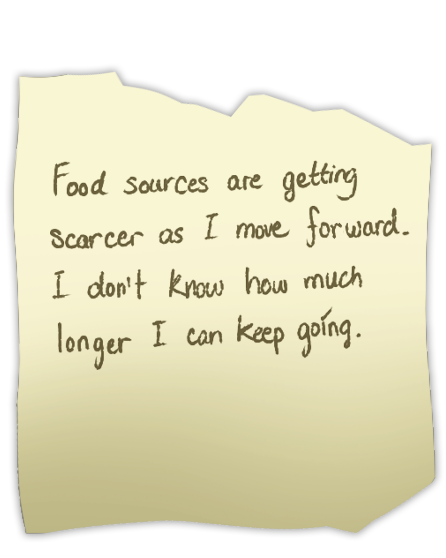 Food sources are getting
scarcer as I move forward.
I don't know how much
longer I can keep going.